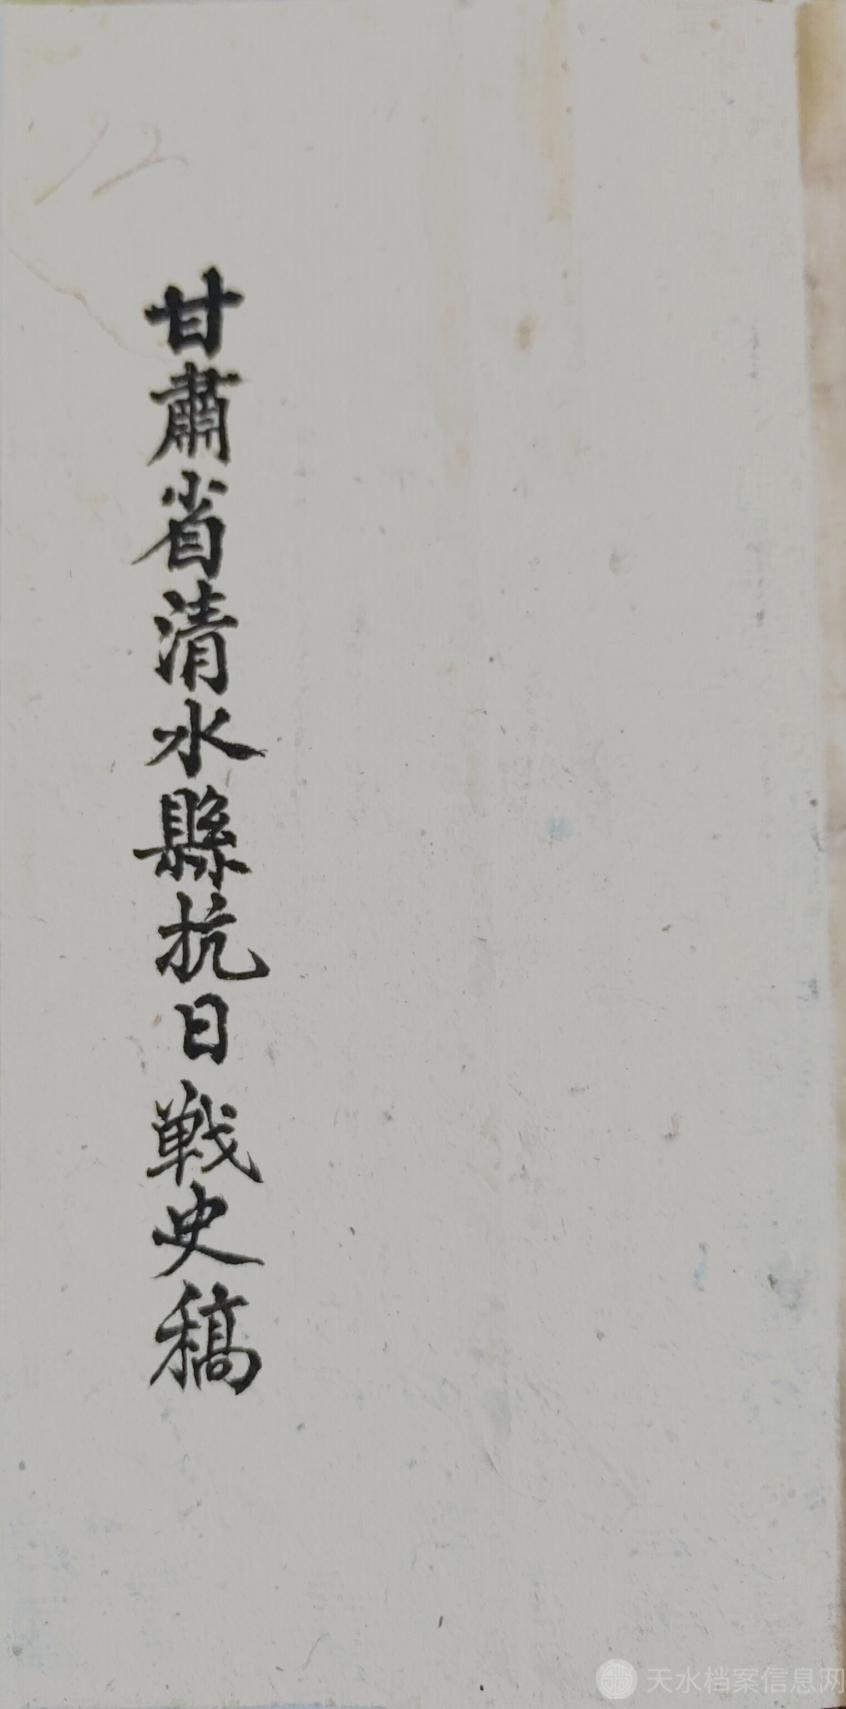 12
甘肅省清水縣抗日戦史稿
天水档案信息网